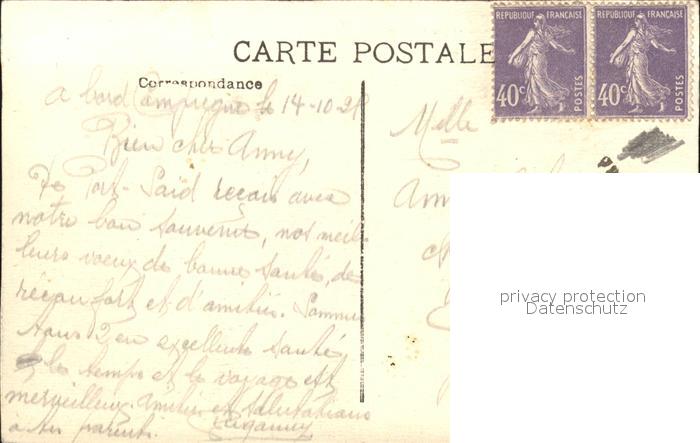 RÉPUBLIQUE FRANÇAISE RÉPUBLIQUE FRANÇAISE
CARTE POSTALE
40c POSTES 40c POSTES
Correspondance
a bord Compiegne le 14-10-2
Bien cher Anny,
De Port-Said reçois avec
notre bon souvenir, nos meil-
leurs voeux de bonne santé, de
réconfort et d'amitié. Sommes
tous 2 en excellente santé,
le temps et le voyage est
merveilleux. Amitiés et salutations
à tes parents.
Melle
privacy protection
Datenschutz